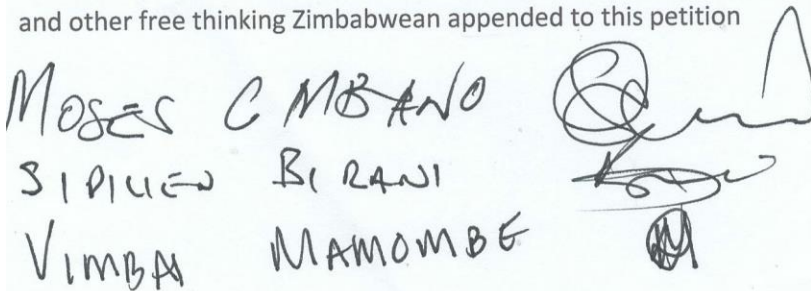 and other free thinking Zimbabwean appended to this petition
MOSES C MBANO
BIRANI
VIMBAI MAMOMBE